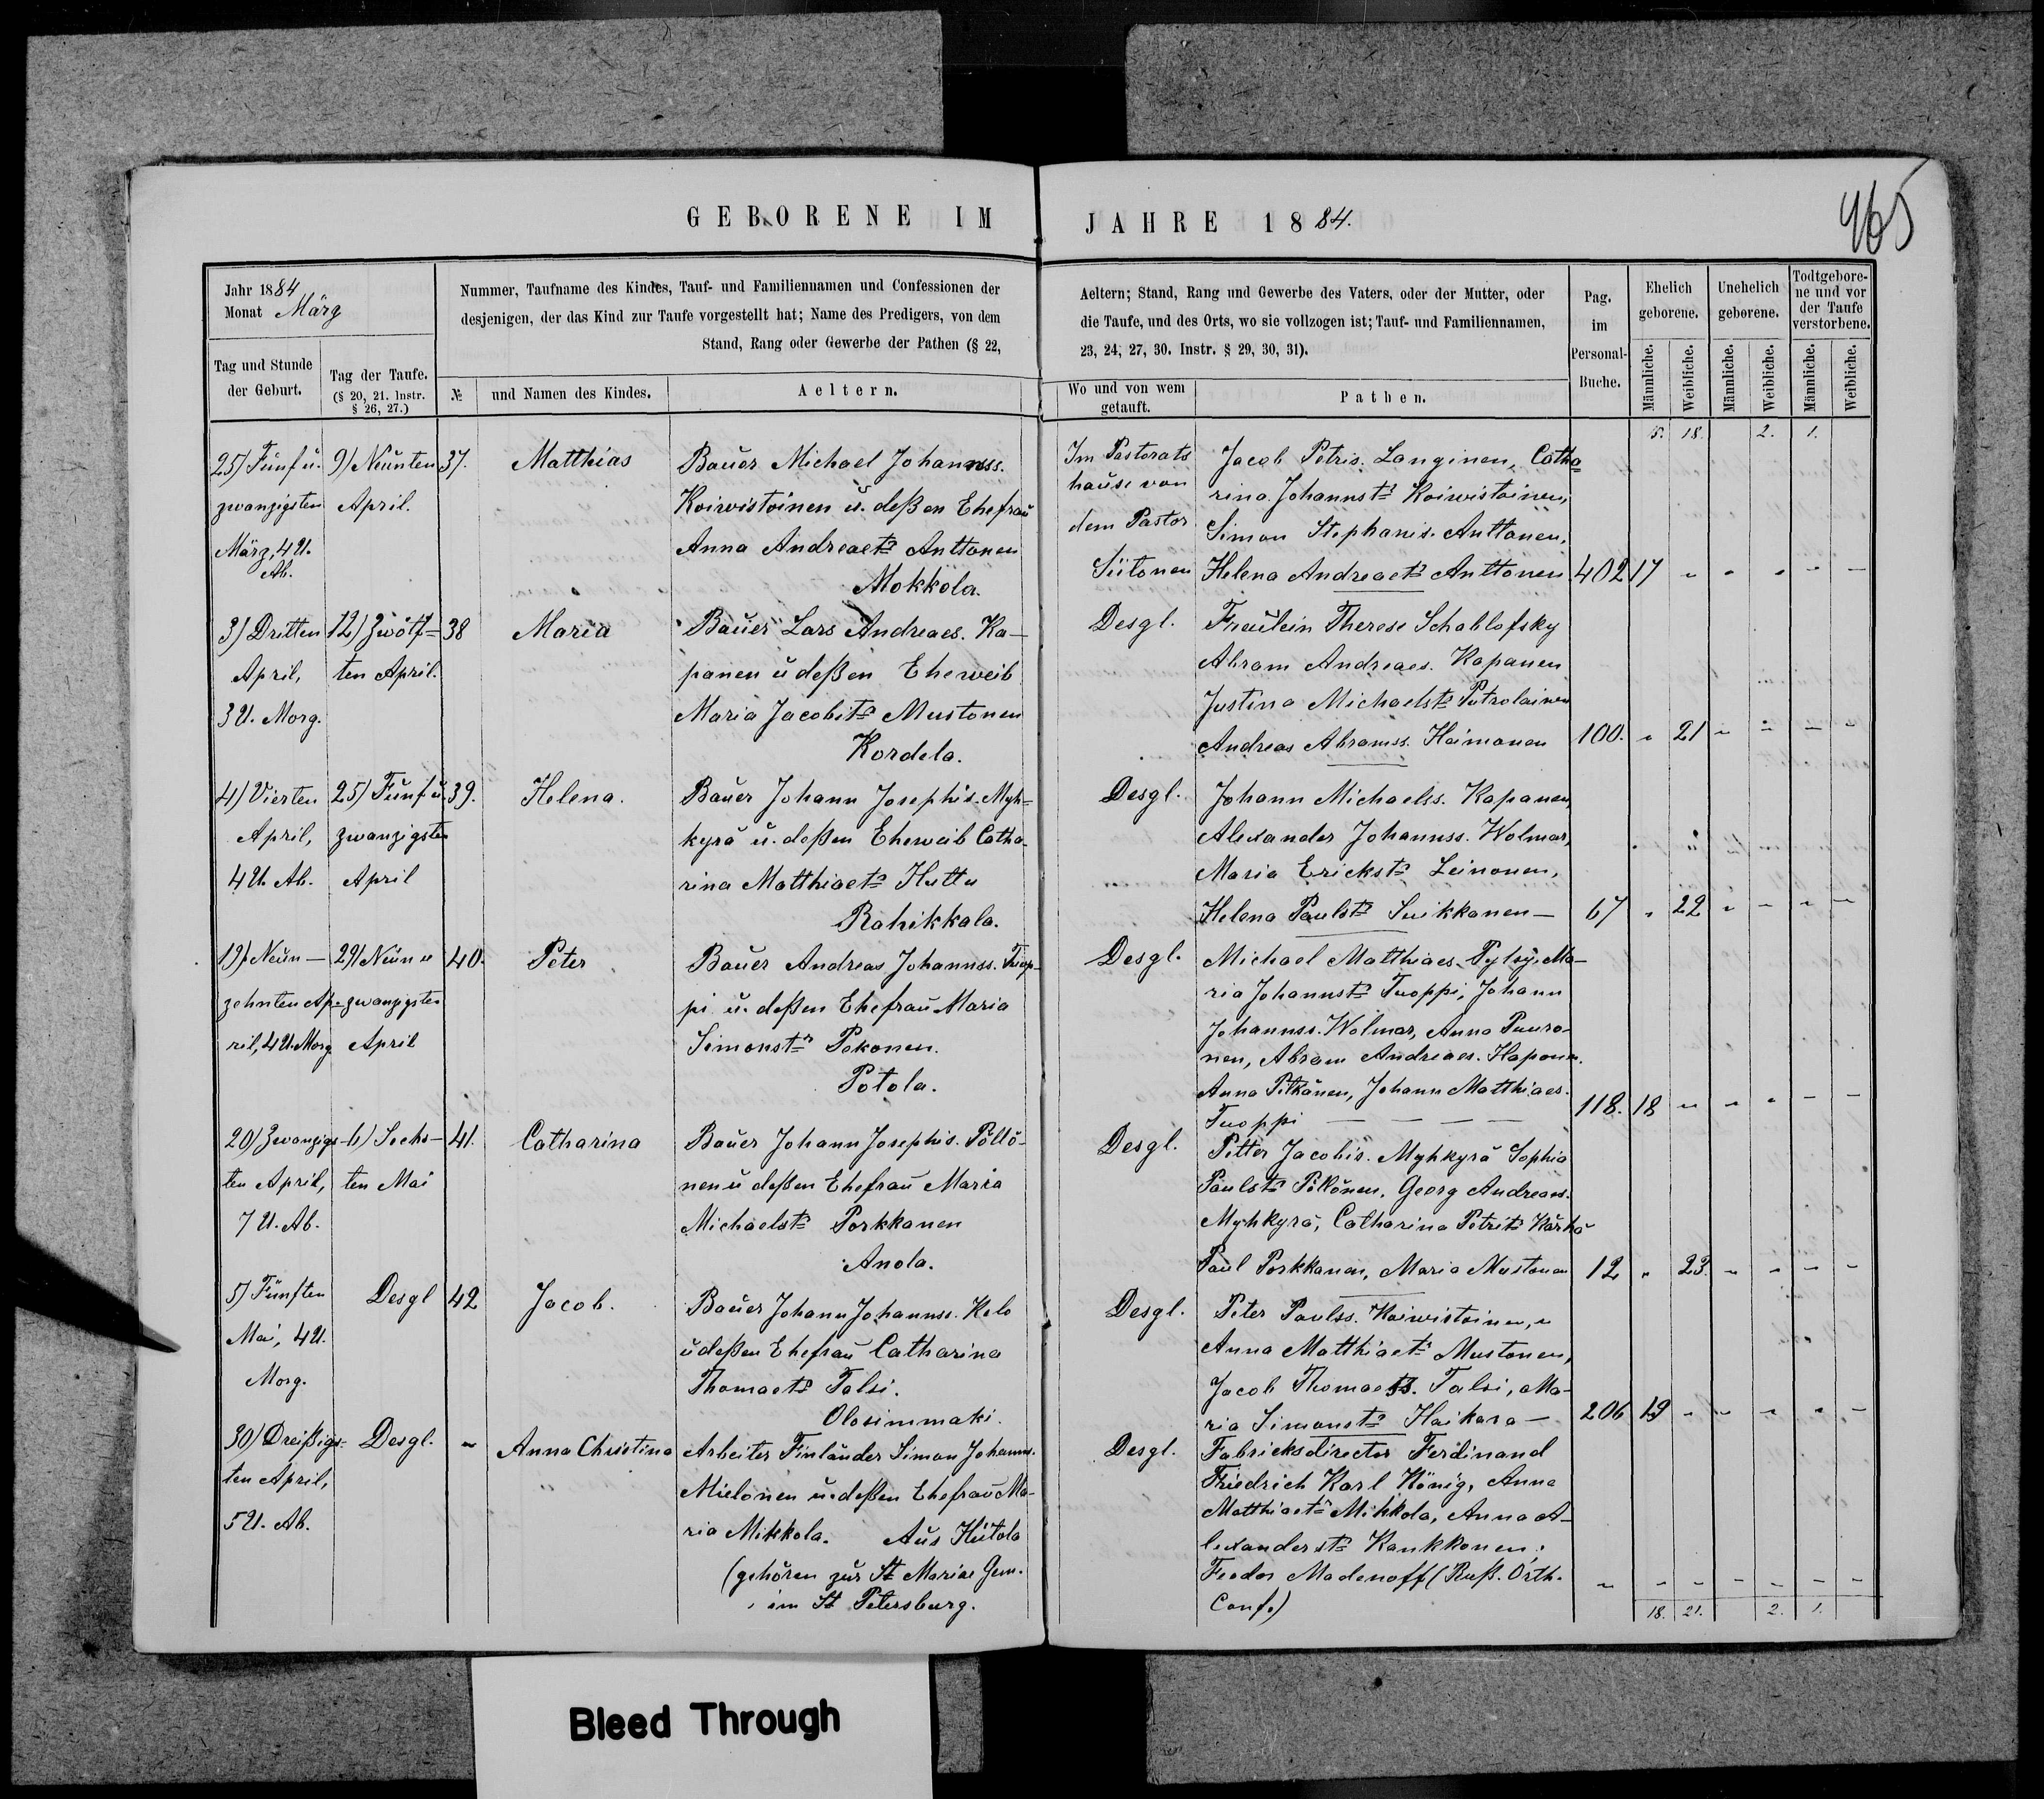 GEBORENE IM JAHRE 1884.
465
Jahr 1884
Monat März
Nummer, Taufname des Kindes, Tauf- und Familiennamen und Confessionen der
desjenigen, der das Kind zur Taufe vorgestellt hat; Name des Predigers, von dem
Stand, Rang oder Gewerbe der Pathen (§ 22,
Aeltern; Stand, Rang und Gewerbe des Vaters, oder der Mutter, oder
die Taufe, und des Orts, wo sie vollzogen ist; Tauf- und Familiennamen,
23, 24, 27, 30. Instr. § 29, 30, 31).
Tag und Stunde
der Geburt.
Tag der Taufe.
(§ 20, 21. Instr.
§ 26, 27.)
№
und Namen des Kindes.
Aeltern.
Wo und von wem
getauft.
Pathen.
Pag.
im
Personal-
Buche.
Ehelich
geborene.
Unehelich
geborene.
Todtgebore-
ne und vor
der Taufe
verstorbene.
Männliche.
Weibliche.
Männliche.
Weibliche.
Männliche.
Weibliche.
18. 2. 1.
25) Fünf u.
zwanzigsten
März, 4 U.
Ab.
9) Neunten
April.
37.
Matthias
Bauer Michael Johannss.
Koiwistoinen u. deßen Ehefrau
Anna Andreaetr Anttonen
Mokkola.
Im Pastorats
hause von
dem Pastor
Siitonen
Jacob Petris. Langinen, Catha
rina Johannstr Koiwistoinen,
Simon Stephanis. Anttonen,
Helena Andreaetr Anttonen
402 17 " " " " –
3) Dritten
April,
3 U. Morg.
12) Zwölf=
ten April.
38
Maria
Bauer Lars Andreaes. Ka-
panen u deßen Eheweib
Maria Jacobitr Mustonen
Kordela.
Desgl.
Fraulein Therese Schablofsky
Abram Andreaes. Kapanen
Justina Michaelstr Putrolainen
Andreas Abramss. Haimonen
100. " 21 " " – "
4) Vierten
April,
4 U. Ab.
25) Fünf u.
zwanzigsten
April
39.
Helena.
Bauer Johann Josephis. Myh=
kyrä u. deßen Eheweib Catha-
rina Matthiaetr Huttu
Rahikkala.
Desgl.
Johann Michaelss. Kapanen
Alexander Johannss. Wolmar,
Maria Erickstr Leinonen,
Helena Paulstr Suikkanen –
67 " 22 " – " –
19) Neun –
zehnten Ap=
ril, 4 U. Morg.
29) Neun u
zwanzigsten
April
40.
Peter
Bauer Andreas Johannss. Tuop-
pi u. deßen Ehefrau Maria
Simonstr Pokonen.
Potola.
Desgl.
Michael Matthiaes. Pylsy, Ma-
ria Johannstr Tuoppi, Johann
Johannss. Wolmar, Anna Puuro-
nen, Abram Andreaes. Haponen.
Anna Pitkänen, Johann Matthiaes.
Tuoppi – – – –
118. 18 " – " – –
20) Zwanzigs-
ten April,
7 U. Ab.
6) Sechs-
ten Mai
41.
Catharina
Bauer Johann Josephis. Pöllö-
nen u deßen Ehefrau Maria
Michaelstr Porkkanen
Anola.
Desgl.
Petter Jacobis. Myhkyrä Sophia
Paulstr Pöllönen, Georg Andreaes.
Myhkyrä, Catharina Petritr Kärhä
Paul Porkkanen, Maria Mustonen
12 " 23. " " – –
5) Fünften
Mai, 4 U.
Morg.
Desgl
42
Jacob.
Bauer Johann Johannss. Kelo
u deßen Ehefrau Catharina
Thomaetr Talsi.
Olosimmaki.
Desgl.
Peter Paulss. Koiwistoinen, u
Anna Matthiaetr Mustonen,
Jacob Thomaess. Talsi, Ma-
ria Simonstr Haikara –
206 19 " " " " –
30) Dreißigs-
ten April,
5 U. Ab.
Desgl.
"
Anna Christina
Arbeiter Finländer Simon Johanns.
Mielonen u. deßen Ehefrau Ma-
ria Mikkola. Aus Hiitola
(gehören zur St Mariae Gem.
im St Petersburg.
Desgl.
Fabricksdirector Ferdinand
Friedrich Karl König, Anna
Matthiaetr Mikkola, Anna A-
lexanderstr Kankkonen;
Feodor Madenoff (Ruß. Orth.
Conf.)
" – – – – – –
18. 21. 2. 1.
Bleed Through